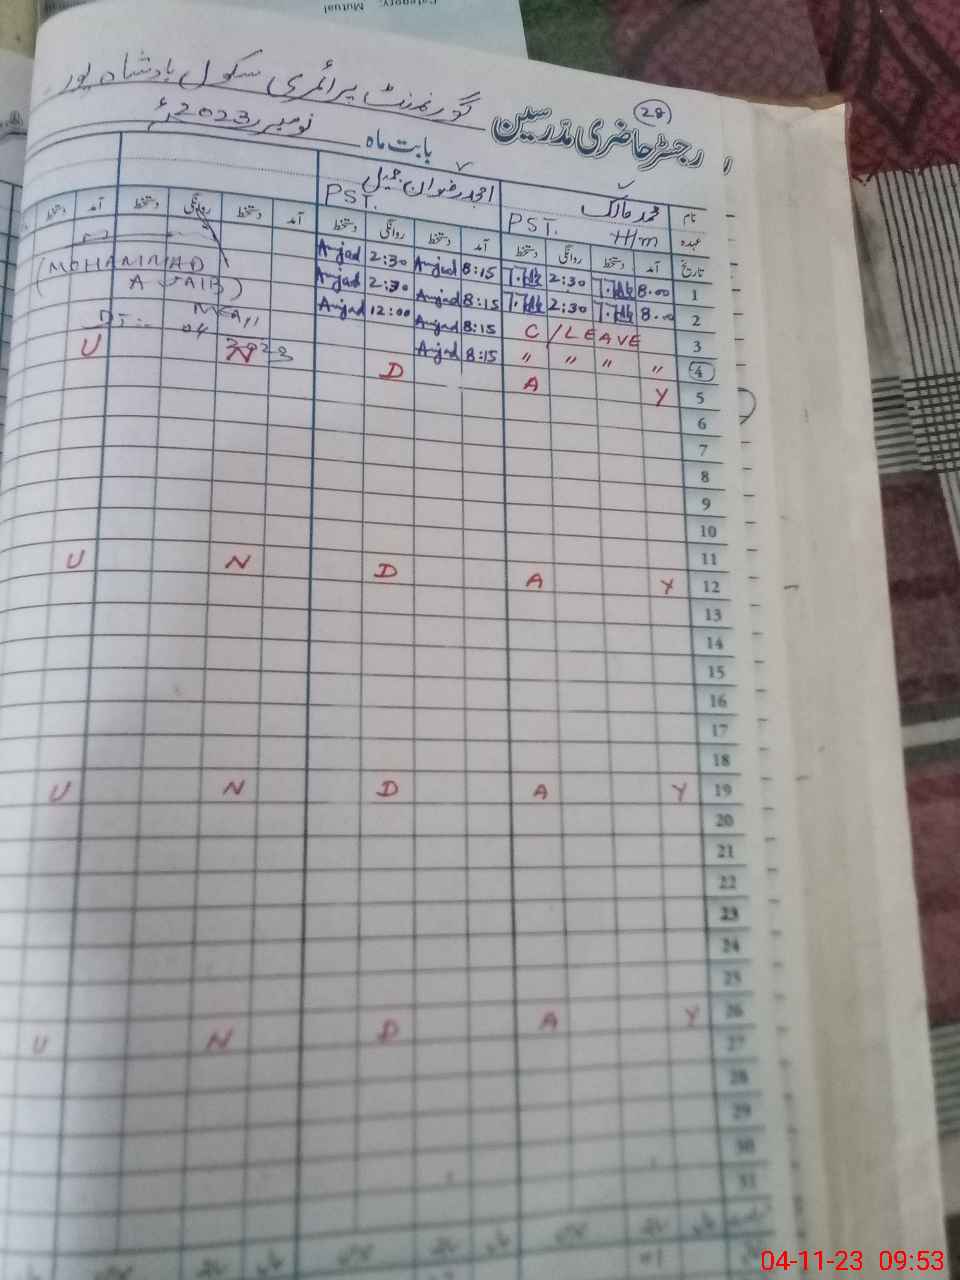 Category:
Mutual
28
رجسٹر حاضری مدرسین
گورنمنٹ پرائمری سکول بادشاہ پور
بابت ماہ نومبر 2023ء
نام محمد مالک امجد رضوان جمیل
عہدہ PST. H/m PST.
تاریخ آمد دستخط روانگی دستخط آمد دستخط روانگی دستخط آمد دستخط روانگی دستخط آمد دستخط
1 8.00 2:30 8:15 Amjad 2:30 Amjad
2 8.00 2:30 8:15 Amjad 2:30 Amjad
3 C/LEAVE 8:15 Amjad 12:00 Amjad
4 " " " " 8:15 Amjad
(MOHAMMAD
DT:- 04
2023
5 U N D A Y
6
7
8
9
10
11
12 U N D A Y
13
14
15
16
17
18
19 U N D A Y
20
21
22
23
24
25
26 U N D A Y
27
28
29
30
31
04-11-23 09:53